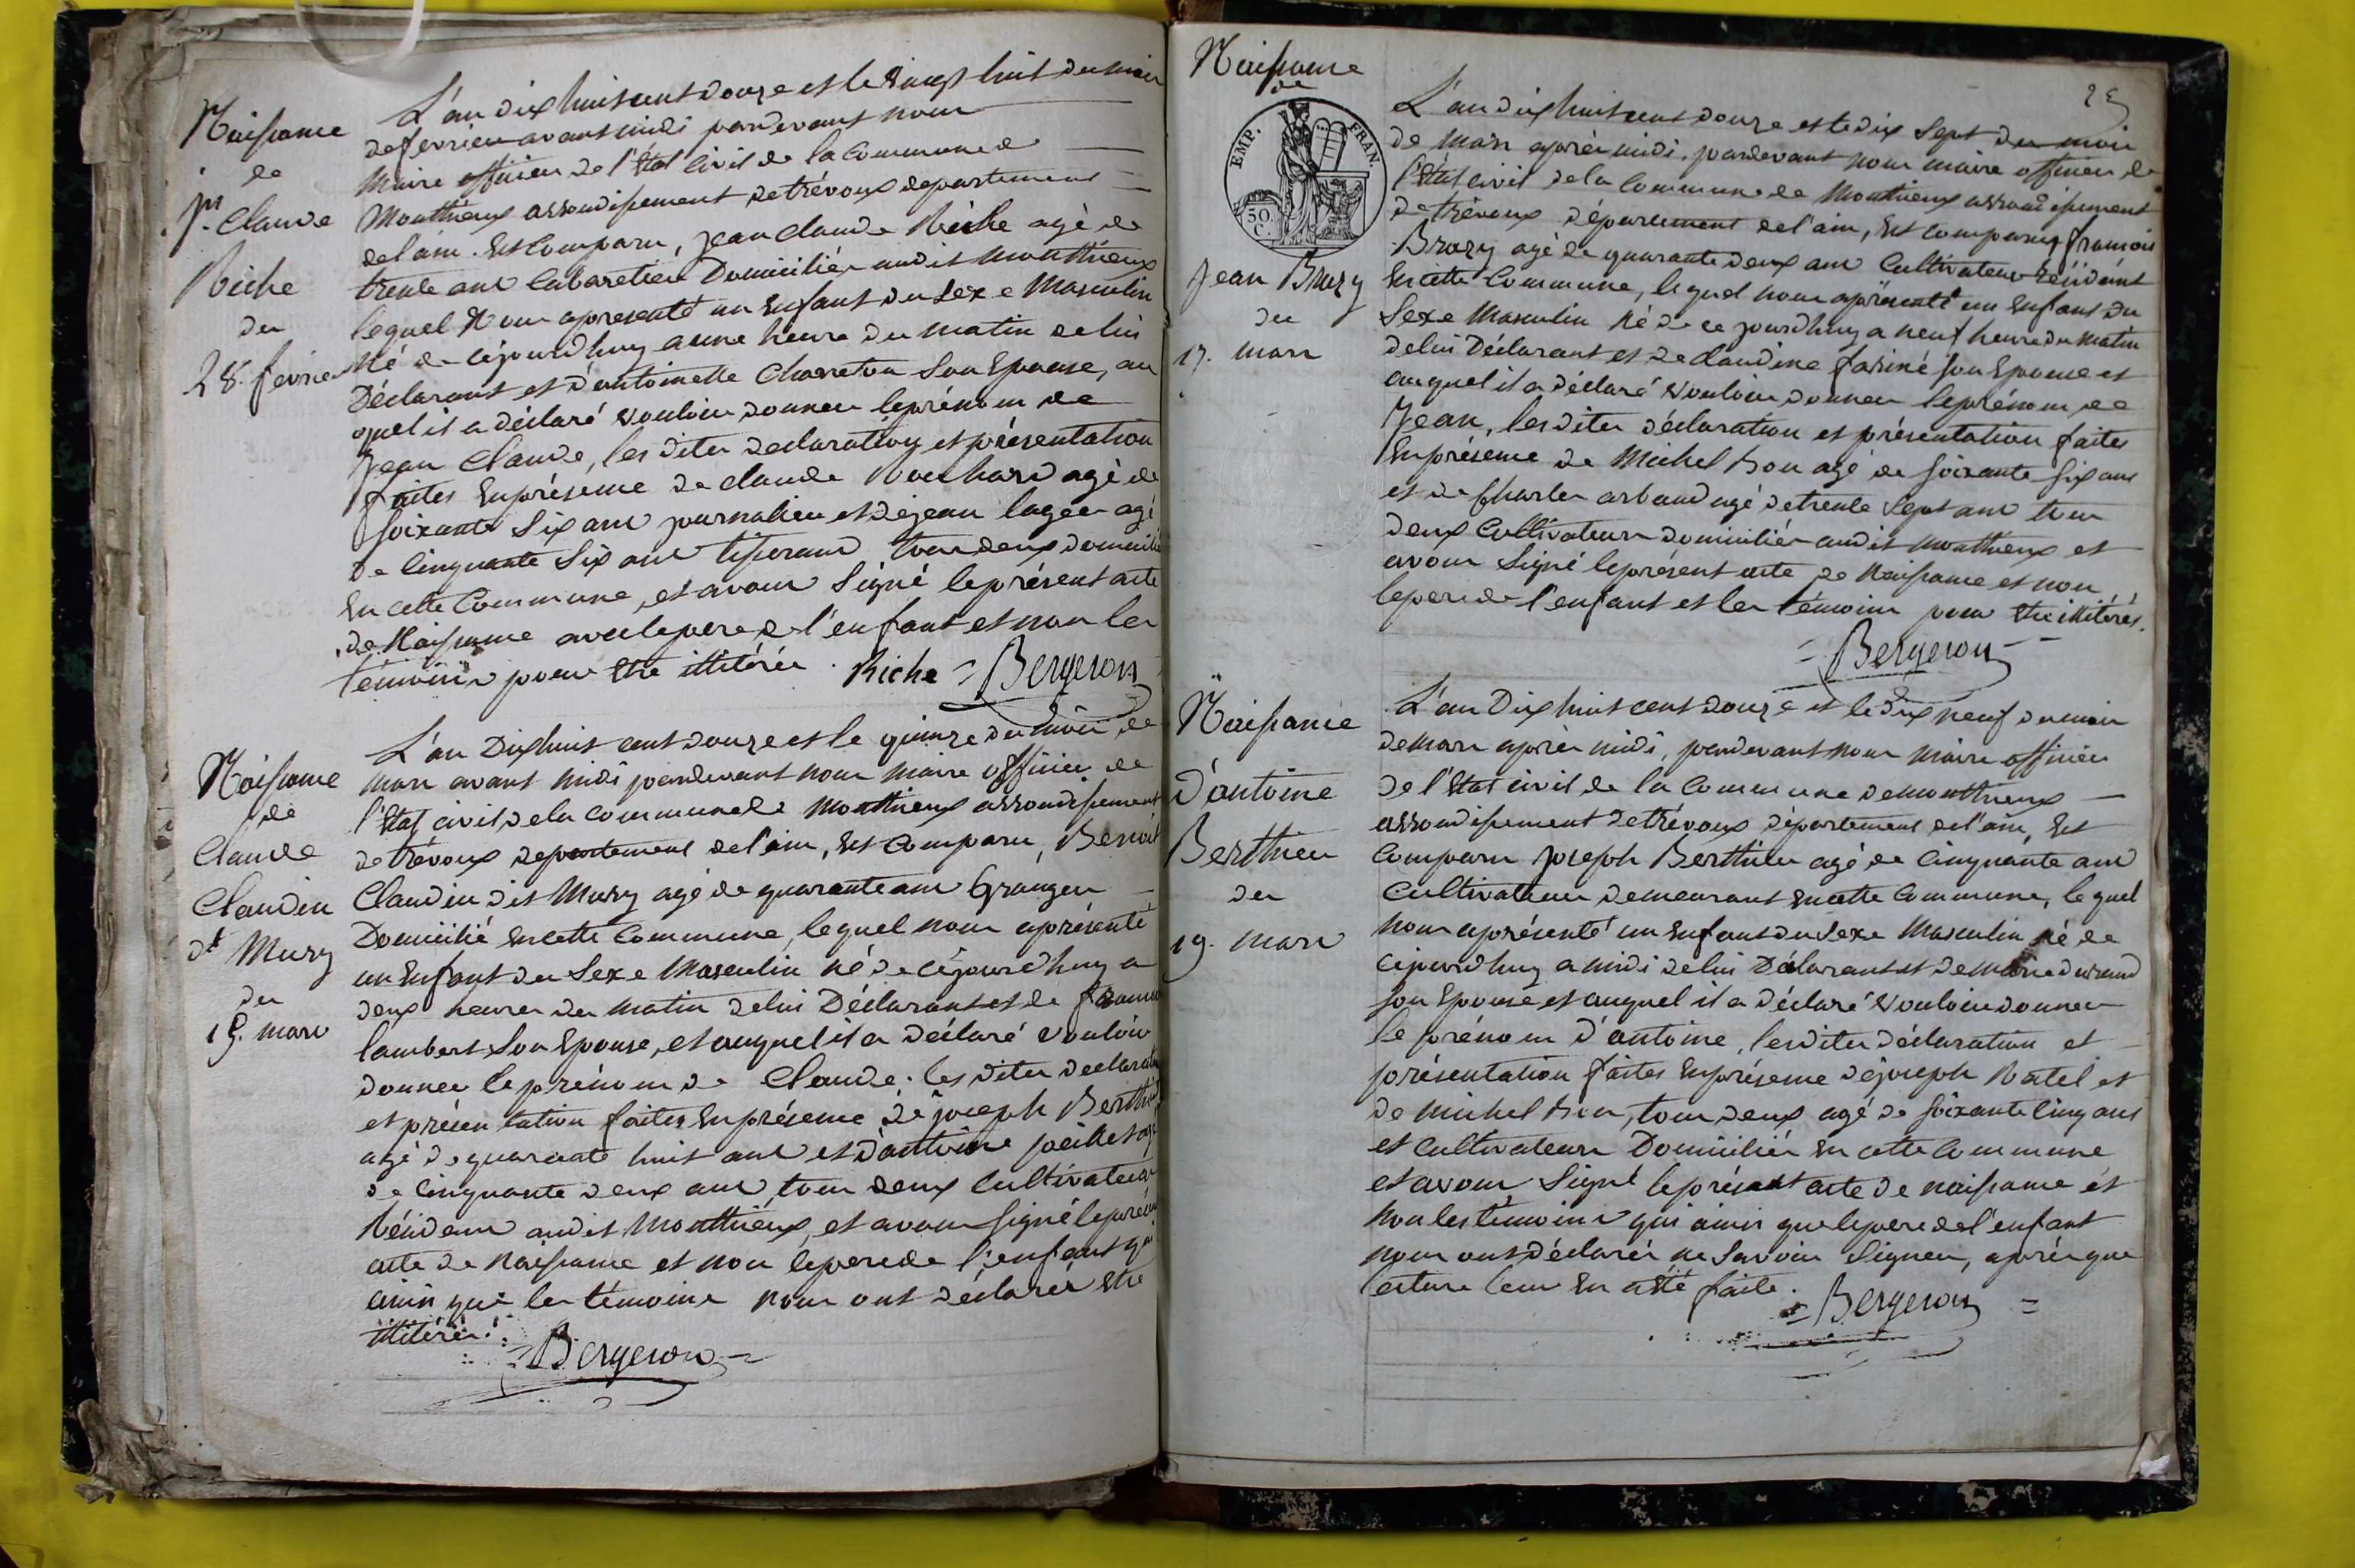 Naissance
de
jn Claude
Riche
du
28. fevrier
L'an dix huit cent douze et le vingt huit du mois
de fevrier avant midi pardevant nous
Maire officier de l'État civil de la commune de
Monthieux arrondissement de trévoux departement
de l'ain. Est comparu, jean claude Riche agé de
trente ans Cabaretier Domicilié audit monthieux
lequel Nous apresenté un Enfant du Sexe Masculin
Né de cejourdhuy a une heure du matin de lui
Déclarant et d'antoinette Charreton Son Epouse, au
quel il a déclaré vouloir donner leprénom de
Jean Claude, les dites declaration et présentation
faites Enprésence de claude Bouchard agé de
soixante Six ans journalier et de jean lager agé
De Cinquante Six ans tisserand tous deux domiciliés
En cette Commune, et avons Signé leprésent acte
de Naissance avec lepere de l'enfant et non les
témoins pour Etre illitérés. Riche = Bergeron
Naissance
de
Claude
Claudin
dt Mury
du
15. mars
L'an Dixhuit cent douze et le quinze du mois de
mars avant midi pardevant nous maire officier de
l'Etat civil, dela commune de Monthieux arrondissement
de trévoux departement de l'ain, Est comparu, Benoit
Claudin dit Mury agé de quarante ans Granger
Domicilié Encette Commune, lequel nous apresenté
un Enfant du Sexe Masculin Né de cejourdhuy a
deux heures du matin delui Déclarant et de
lambert Son Epouse, et auquel il a déclaré vouloir
donner leprénom de Claude. les dites declaration
et présentation faites Enprésence de joseph Berthieu
agé de quarante huit ans et d'antoine agé
de Cinquante deux ans, tous deux Cultivateurs
Résidans audit Monthieux, et avons signé leprésent
acte de Naissance et non lepere de l'enfant qui
ainsi que les témoins nous ont déclarés Etre
illitérés.
Bergeron
Naissance
de
EMP. FRAN.
50. C.
Jean Brazy
du
17. mars
25
L'an dix huit cent douze et le dix Sept du mois
de mars après midi, pardevant nous maire officier de
l'État civil dela Commune de Monthieux arrondissement
de trévoux département de l'ain, Est comparu françois
Brazy agé de quarante deux ans Cultivateur résidant
En cette Commune, lequel nous apresenté un Enfant du
Sexe Masculin Né de ce jourdhuy a neuf heures du Matin
delui Déclarant et de claudine fariné son Epouse et
auquel il a déclaré vouloir donner leprénom de
Jean, les dites déclaration et présentation faites
Enprésence de Michel agé de soixante six ans
et de Charles arbaud agé de trente Sept ans tous
deux Cultivateurs domiciliés audit monthieux et
avons Signé leprésent acte de Naissance et non
lepere de l'enfant et les témoins pour Etre illitérés.
= Bergeron =
Naissance
d'antoine
Berthieu
du
19. mars
L'an Dix huit cent douze et le dix neuf du mois
demars après midi, pardevant nous maire officier
de l'Etat civil de la Commune demonthieux
arrondissement detrévoux département de l'ain, Est
comparu joseph Berthieu agé de Cinquante ans
Cultivateur demeurant Encette Commune, lequel
nous apresenté un Enfant du Sexe Masculin Né de
cejourdhuy a midi delui Déclarant et demarie durand
son Epouse et auquel il a déclaré vouloir donner
le prénom d'antoine, les dites déclaration et
présentation faites Enprésence dejoseph Ratel et
de Michel tous deux agé de soixante Cinq ans
et Cultivateurs Domiciliés En cette Commune
et avons Signé leprésent acte de naissance et
non les témoins qui ainsi que lepere de l'enfant
nous ont déclarés ne Savoir Signer, après que
lecture leur En a été faite.
= Bergeron =